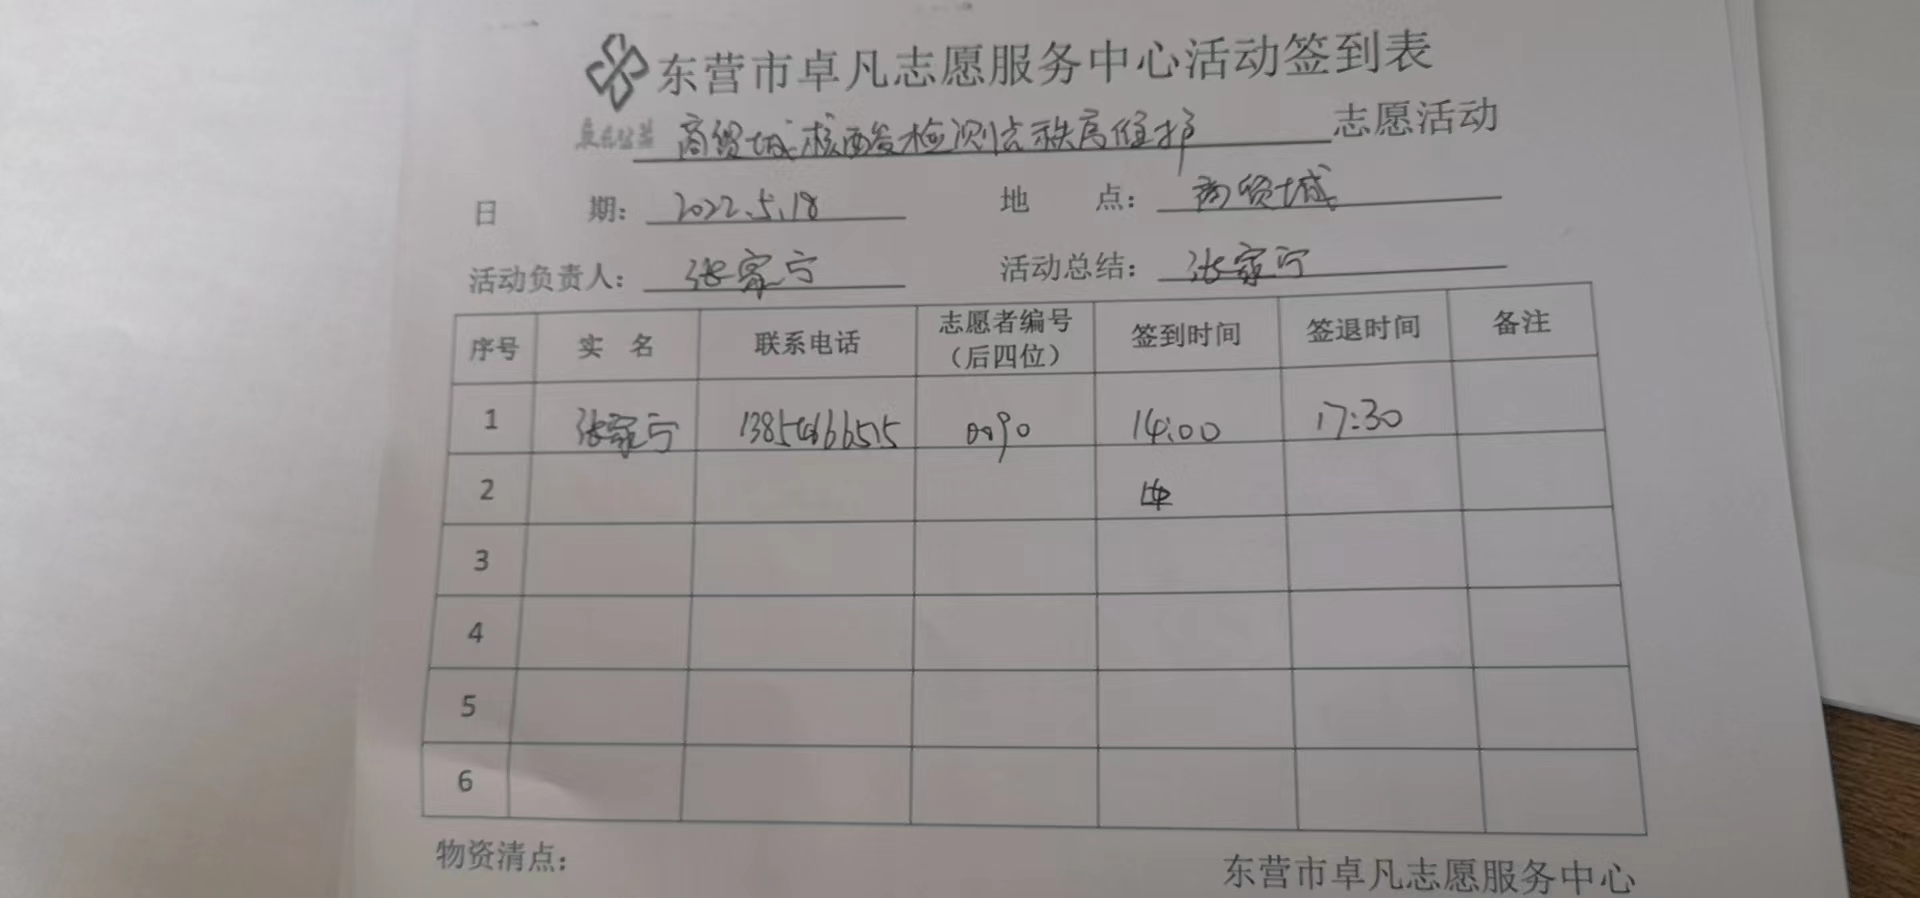 东营市卓凡志愿服务中心活动签到表
商贸城核酸检测点秩序维护 志愿活动
日 期： 2022.5.18 地 点： 商贸城
活动负责人： 张家宁 活动总结： 张家宁
序号 实 名 联系电话 志愿者编号（后四位） 签到时间 签退时间 备注
1 张家宁 0090 14:00 17:30
2
3
4
5
6
物资清点：
东营市卓凡志愿服务中心